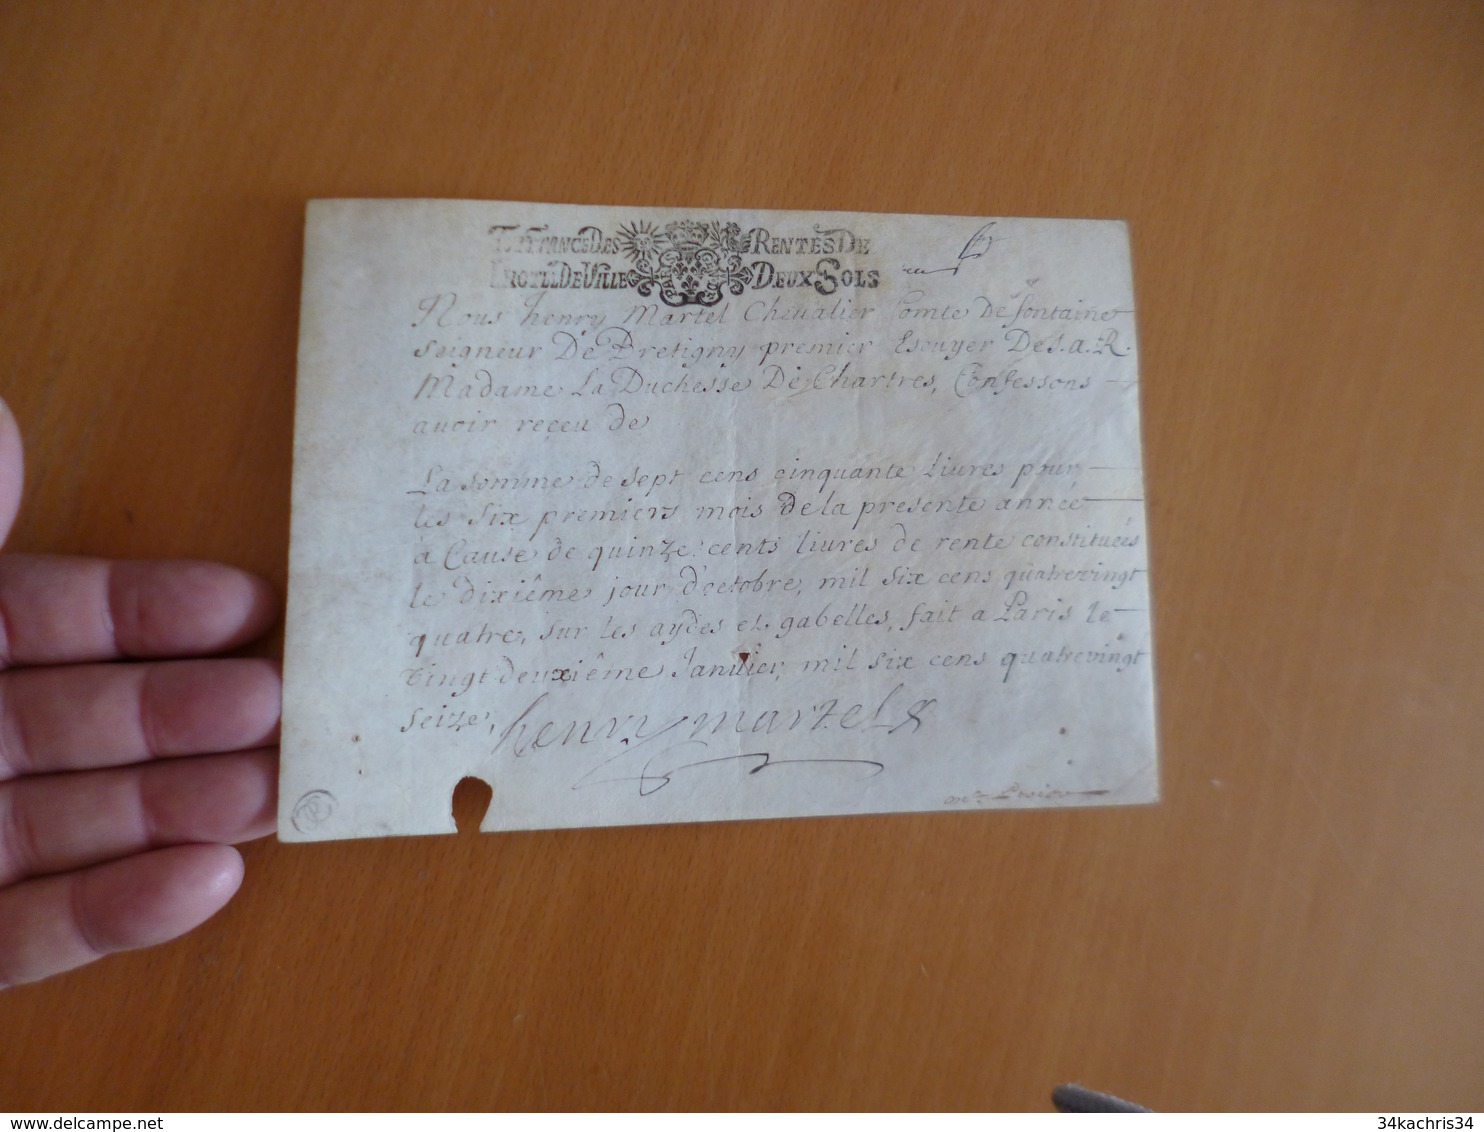 QUITTANCE DES RENTES DE
LHOTEL DE VILLE DEUX SOLS
PARIS
Nous henry Martel Cheualier Comte De fontaines
Seigneur De Bretigny premier Escuyer De S.a.R.
Madame La Duchesse De Chartres, Confessons
auoir reçeu de
La somme de sept cens cinquante liures pour
les six premiers mois de la presente année
a Cause de quinze cents liures de rente constituées
le dixiême jour d'octobre, mil six cens quatrevingt
quatre, sur les aydes et gabelles, fait a Paris le
vingt deuxiême Januier, mil six cens quatrevingt
seize,
henry martel
delcampe.net
34kachris34